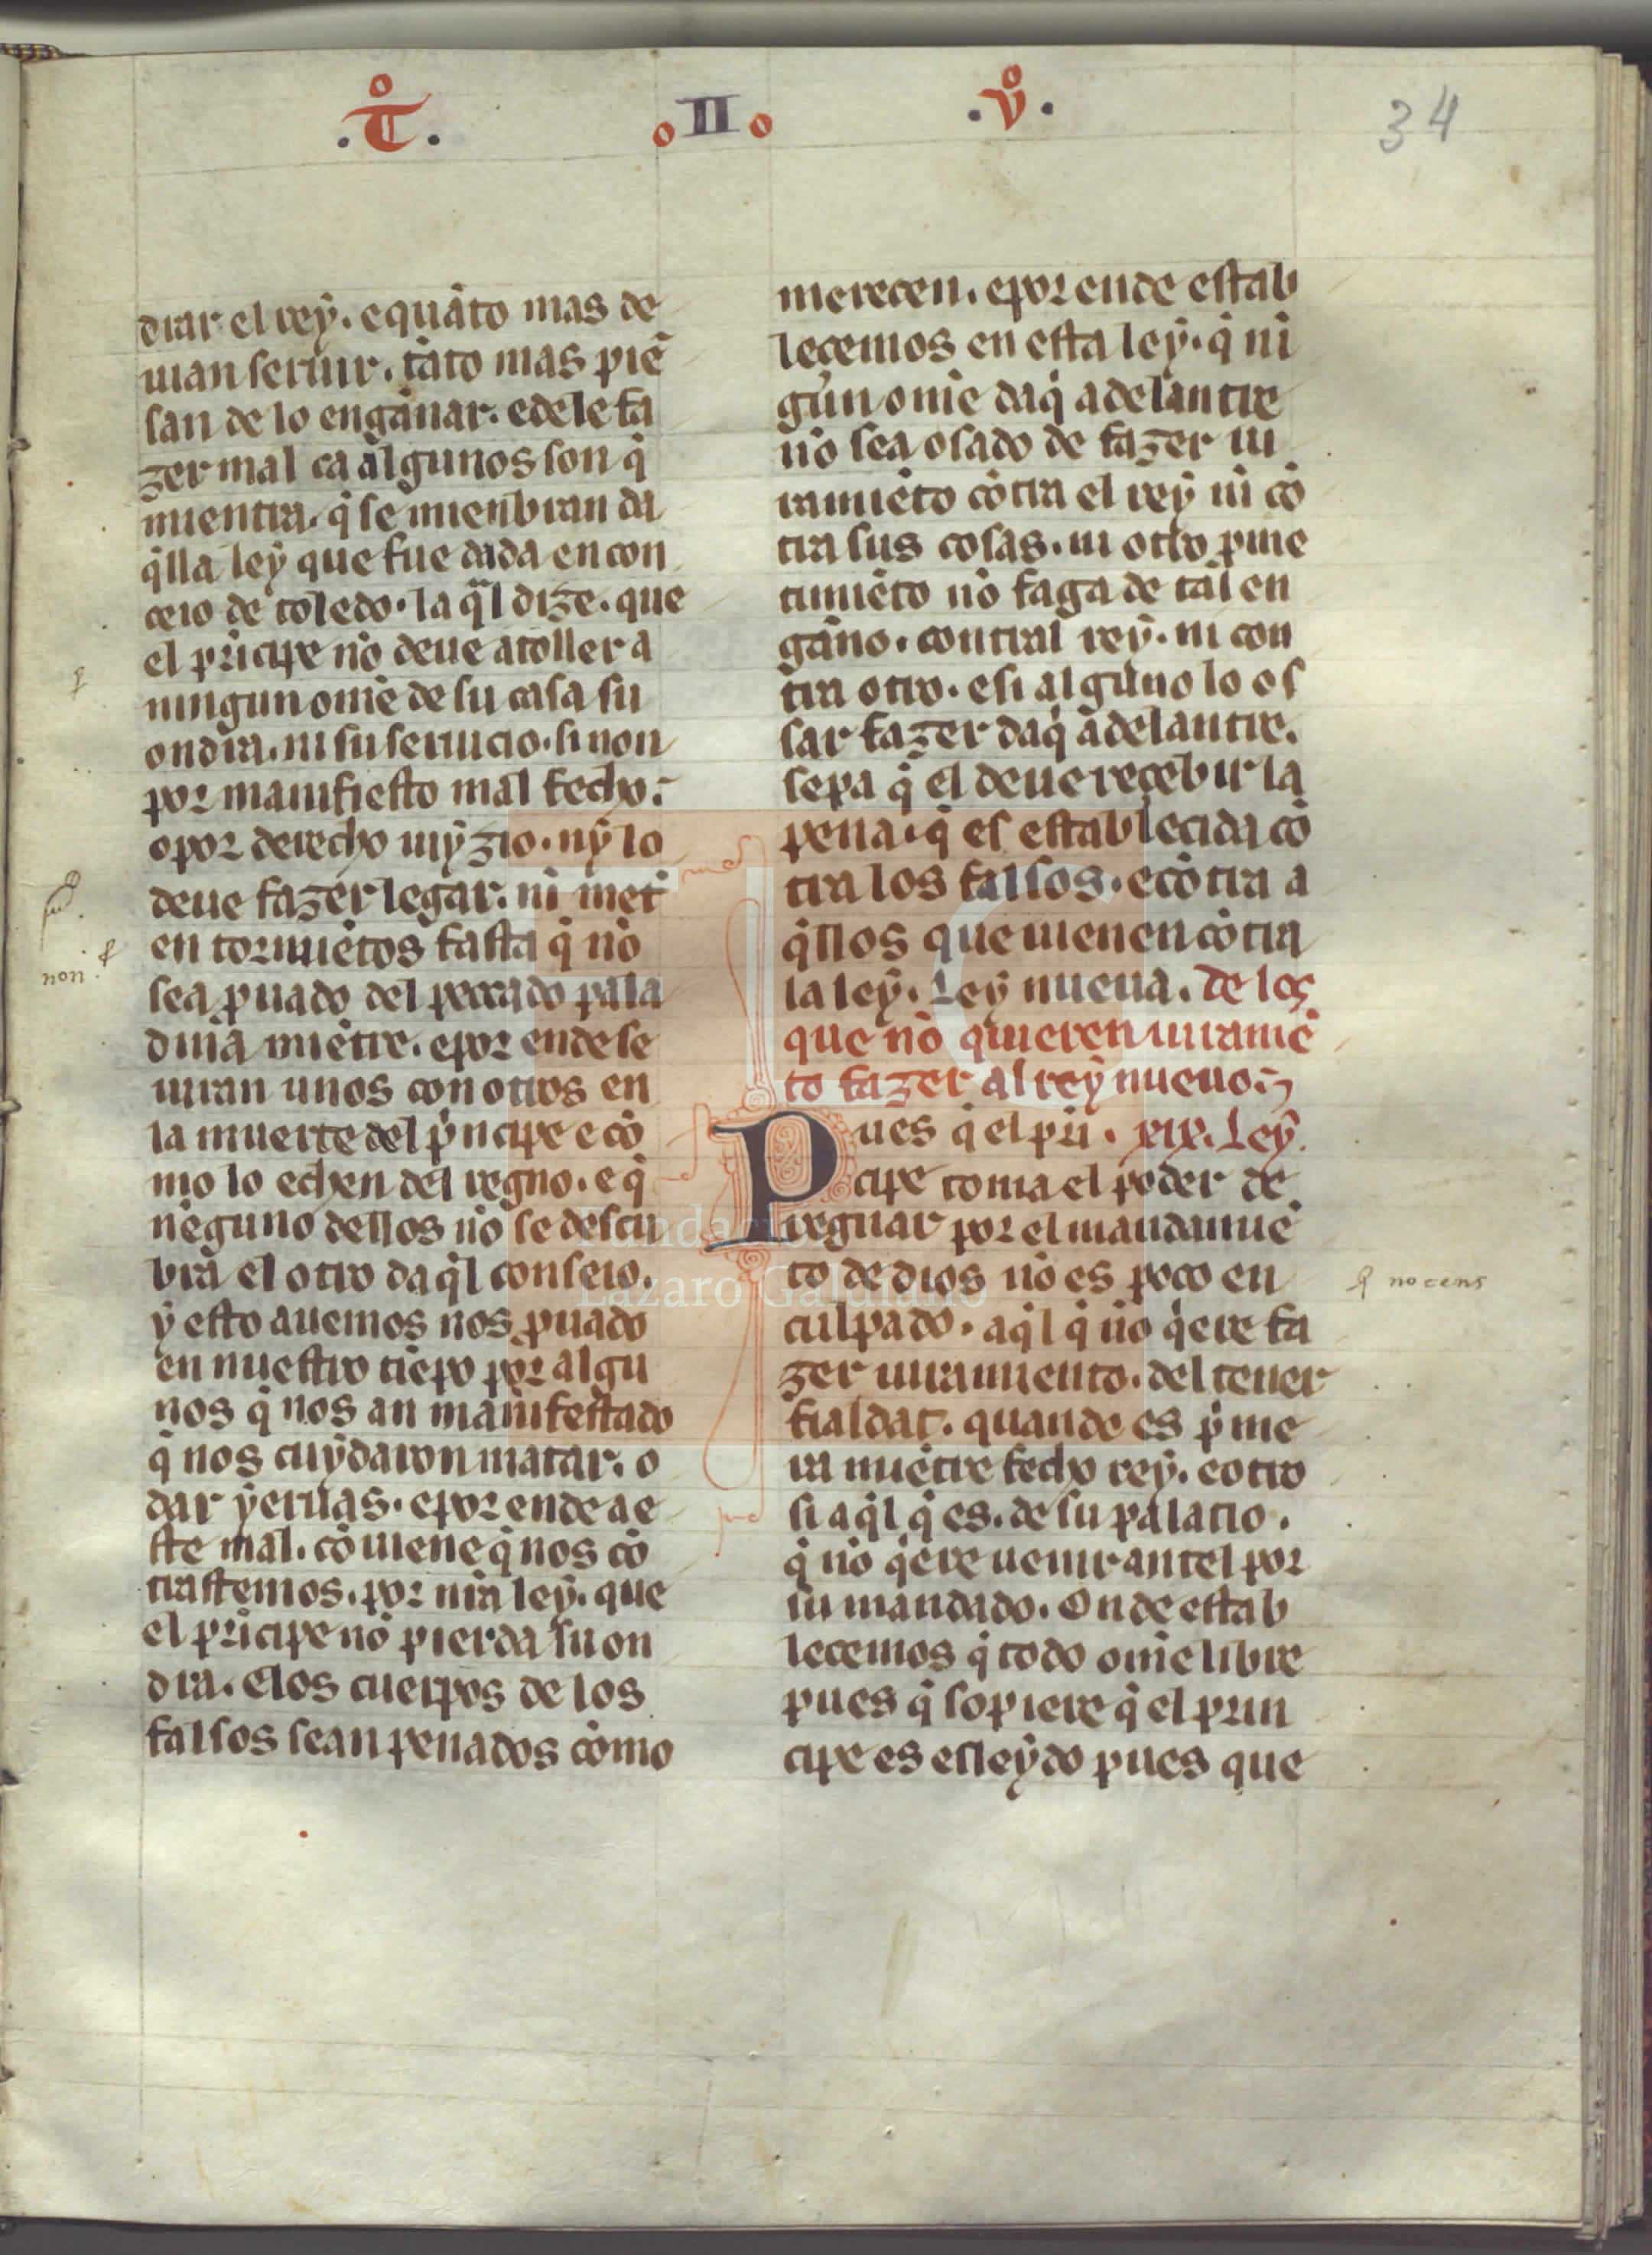 .T°. °II° .v°.
34
diar el rey. e quãto mas de
uian seruir. tãto mas piẽ
san de lo engannar. e de le fa
zer mal ca algunos son q̃
mientra. q̃ se mienbran da
q̃lla ley que fue dada en con
ceio de toledo. la q̃l dize. que
el prĩcipe nõ deue atoller a
ningun omẽ de su casa su
ondra. ni su seruicio. si non
por manifiesto mal fecho.
o por derecho iuyzio. ny lo
deue fazer legar. ni met̃
en tormiẽtos fasta q̃ nõ
sea ꝓuado del peccado pala
dina miẽtre. e por ende se
iuran unos con otros en
la muerte del p̃ncipe e cõ
mo lo echen del regno. e q̃
neguno dellos nõ se descu
bra el otro da q̃l conseio.
y esto auemos nos ꝓuado
en nuestro tiẽpo por algu
nos q̃ nos an manifestado
q̃ nos cuydaron matar. o
dar yeruas. e por ende a e
ste mal. cõuiene q̃ nos cõ
trastemos. por nr̃a ley. que
el prĩcipe nõ pierda su on
dra. E los cuerpos de los
falsos sean penados cõmo
merecen. e por ende estab
lecemos en esta ley. q̃ nĩ
gun omẽ daq̃ adelantre
nõ sea osado de fazer iu
ramiẽto cõtra el rey ni cõ
tra sus cosas. ni otro ꝓme
timiẽto nõ faga de tal en
ganno. contral rey. ni con
tra otro. e si alguno lo os
sar fazer daq̃ adelantre.
sepa q̃ el deue recebir la
pena. q̃ es establecida cõ
tra los falsos. e cõtra a
q̃llos que uienen cõtra
la ley. Ley nueua. De los
que nõ quieren iuramẽ
to fazer al rey nueuo
Pues q̃ el prĩ. xix. Ley.
cipe toma el poder de
regnar por el mandamiẽ
to de dios nõ es poco en
culpado. aq̃l q̃ nõ q̃ere fa
zer iuramiento. del tener
fialdat. quande es p̃me
ra miẽtre fecho rey. e otro
si aq̃l q̃ es. de su palatio.
q̃ nõ q̃ere uenir antel por
su mandado. Onde estab
lecemos q̃ todo omẽ libre
pues q̃ sopiere q̃ el prin
cipe es esleydo pues que
non
nocens
Fundación
Lázaro Galdiano